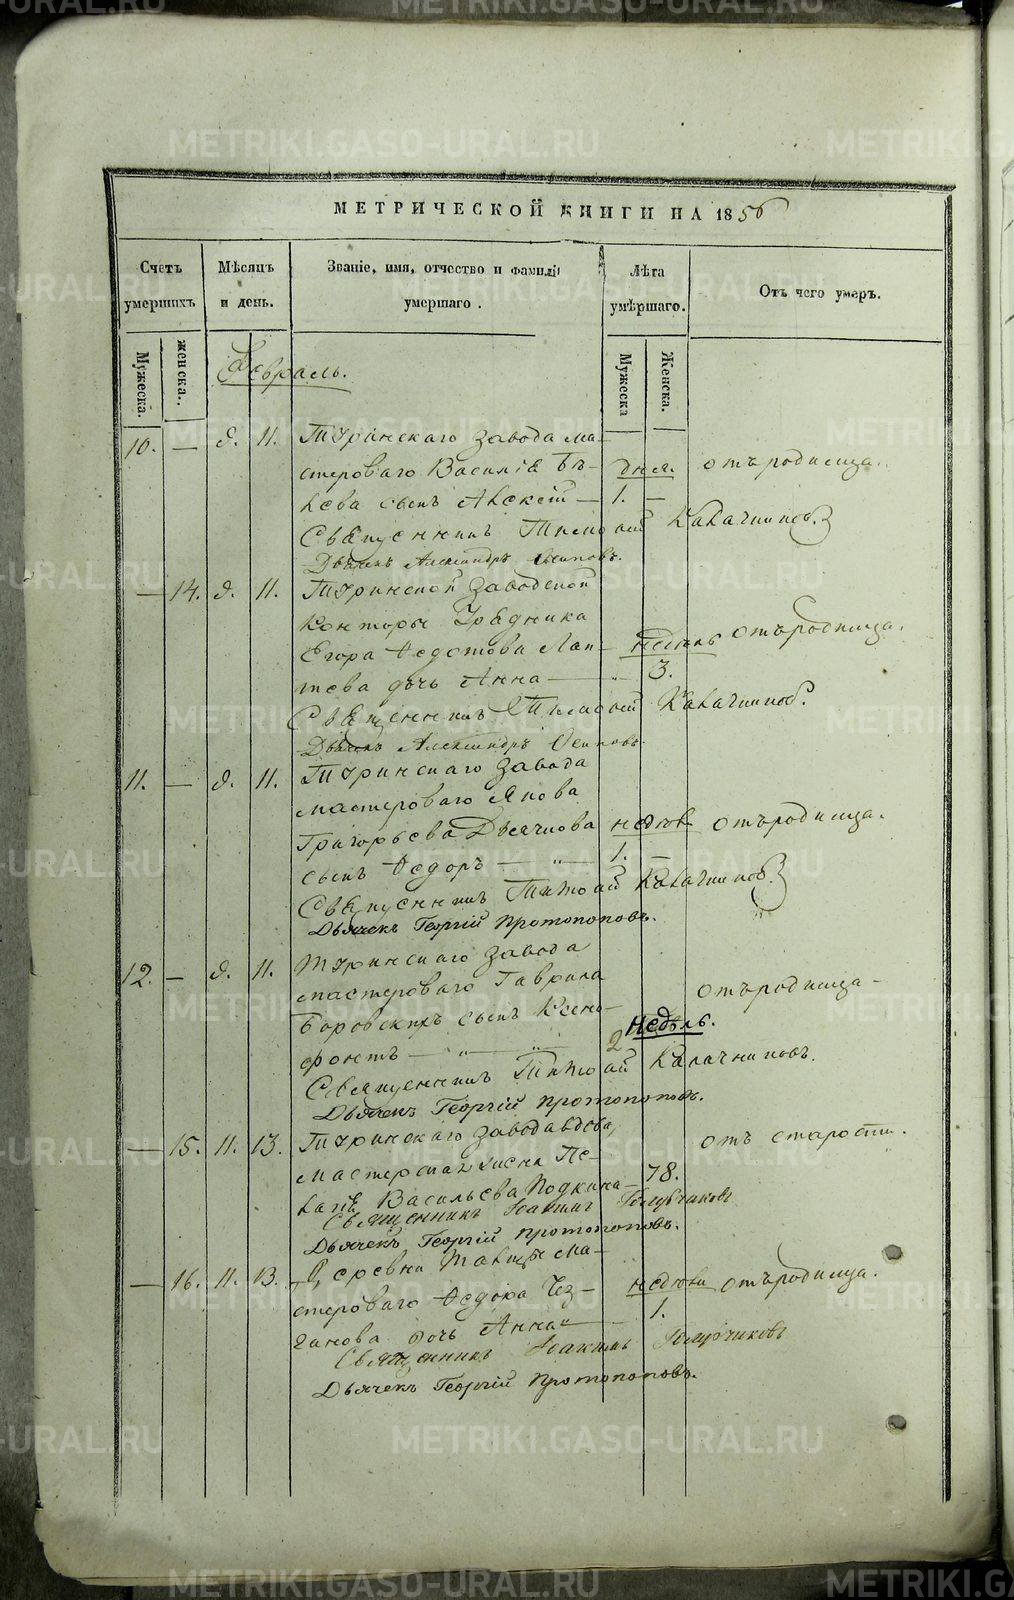 МЕТРИЧЕСКОЙ КНИГИ НА 1856
Счетъ умершихъ
Мѣсяцъ и день.
Званіе, имя, отчество и фамилія умершаго.
Лѣта умѣршаго.
Отъ чего умеръ.
Мужеска.
женска.
Мужеска
Женска.
Февраль.
10. — 9. 11. Туринскаго завода ма-
стероваго Василія Бѣ- дня. отъ родимца.
лева сынъ Алексѣй — 1. —
Священникъ Тимофей Калачниковъ
Дьячекъ Александръ Осиповъ.
— 14. 9. 11. Туринской заводской
Конторы Урядника
Егора Федотова Лап- недѣль отъ родимца.
тева дочь Анна — " 3.
Священникъ Тимофей Калачниковъ.
Дьячекъ Александръ Осиповъ
11. — 9. 11. Туринскаго завода
мастероваго Якова
Григорьева Дьячкова недѣли отъ родимца.
сынъ Федоръ — " — 1. —
Священникъ Тимофей Калачниковъ.
Дьячекъ Георгій Протопоповъ.
12. — 9. 11. Туринскаго завода
мастероваго Гаврила отъ родимца —
Боровскихъ сынъ Ксено- недѣль.
фонтъ — " — " 2
Священникъ Тимофей Калачниковъ.
Дьячекъ Георгій Протопоповъ.
— 15. 11. 13. Туринскаго завода вдова,
мастерская жена Пе- отъ старости.
лагія Васильева Кодкина — 78.
Священникъ Іоакимъ Голубчиковъ
Дьячекъ Георгій Протопоповъ.
— 16. 11. 13. Деревни ма-
стероваго Федора недѣли отъ родимца.
ганова дочь Анна " 1.
Священникъ Іоакимъ Голубчиковъ
Дьячекъ Георгій Протопоповъ.
METRIKI.GASO-URAL.RU